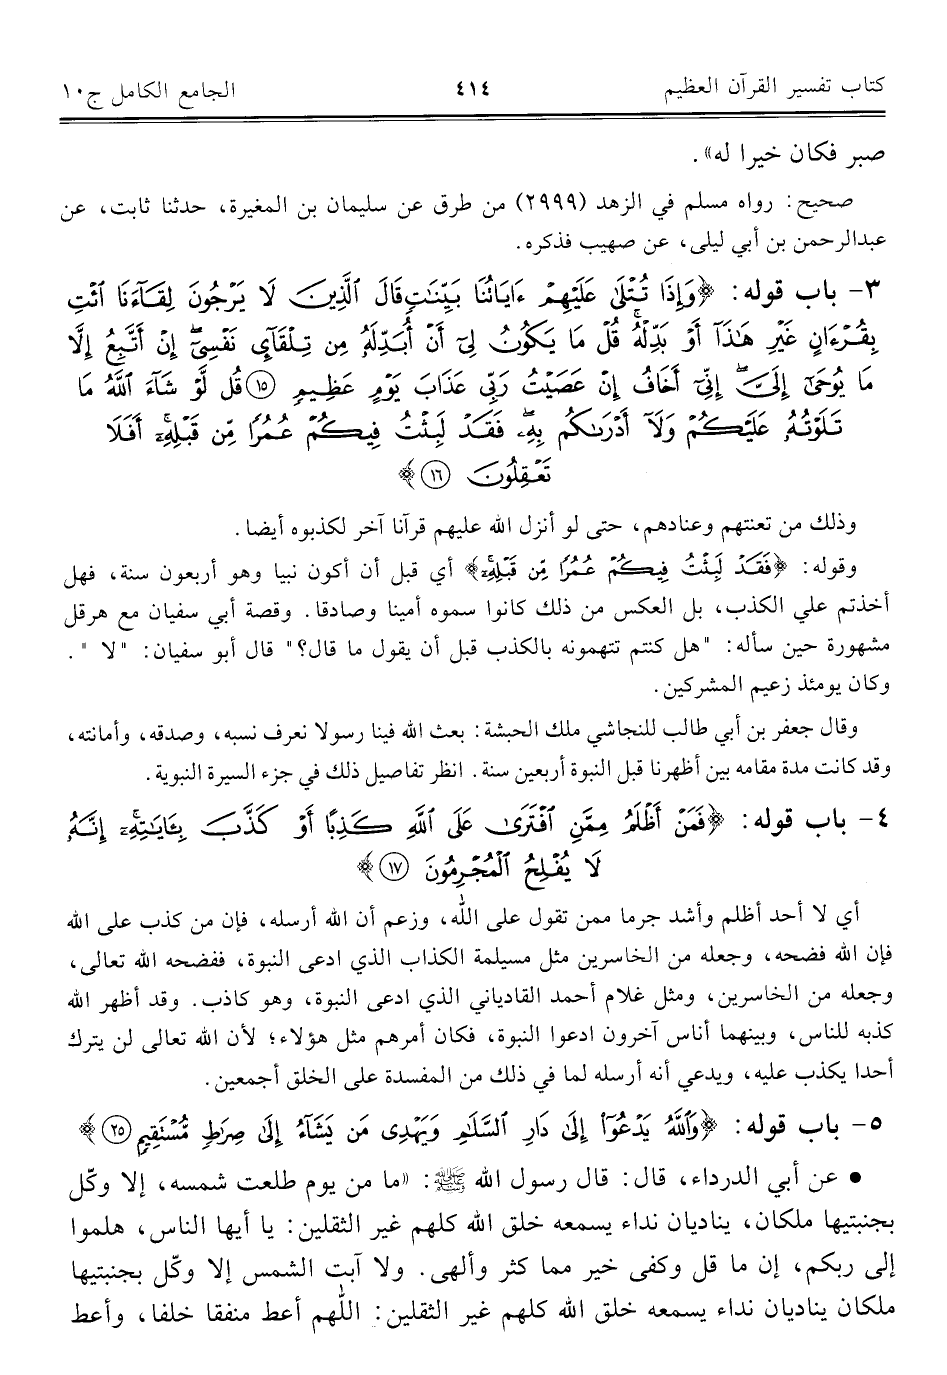 كتاب تفسير القرآن العظيم ٤١٤ الجامع الكامل ج١٠
صبر فكان خيرا له».
صحيح: رواه مسلم في الزهد (٢٩٩٩) من طرق عن سليمان بن المغيرة، حدثنا ثابت، عن
عبدالرحمن بن أبي ليلى، عن صهيب فذكره.
٣- باب قوله: ﴿وَإِذَا تُتْلَىٰ عَلَيْهِمْ ءَايَاتُنَا بَيِّنَٰتٍ قَالَ ٱلَّذِينَ لَا يَرْجُونَ لِقَآءَنَا ٱئْتِ
بِقُرْءَانٍ غَيْرِ هَٰذَآ أَوْ بَدِّلْهُ ۚ قُلْ مَا يَكُونُ لِىٓ أَنْ أُبَدِّلَهُۥ مِن تِلْقَآئِ نَفْسِىٓ ۖ إِنْ أَتَّبِعُ إِلَّا
مَا يُوحَىٰٓ إِلَىَّ ۖ إِنِّىٓ أَخَافُ إِنْ عَصَيْتُ رَبِّى عَذَابَ يَوْمٍ عَظِيمٍ (١٥) قُل لَّوْ شَآءَ ٱللَّهُ مَا
تَلَوْتُهُۥ عَلَيْكُمْ وَلَآ أَدْرَىٰكُم بِهِۦ ۖ فَقَدْ لَبِثْتُ فِيكُمْ عُمُرًا مِّن قَبْلِهِۦٓ ۚ أَفَلَا
تَعْقِلُونَ (١٦)﴾
وذلك من تعنتهم وعنادهم، حتى لو أنزل الله عليهم قرآنا آخر لكذبوه أيضا.
وقوله: ﴿فَقَدْ لَبِثْتُ فِيكُمْ عُمُرًا مِّن قَبْلِهِۦٓ ۚ﴾ أي قبل أن أكون نبيا وهو أربعون سنة، فهل
أخذتم علي الكذب، بل العكس من ذلك كانوا سموه أمينا وصادقا. وقصة أبي سفيان مع هرقل
مشهورة حين سأله: "هل كنتم تتهمونه بالكذب قبل أن يقول ما قال؟" قال أبو سفيان: "لا ".
وكان يومئذ زعيم المشركين.
وقال جعفر بن أبي طالب للنجاشي ملك الحبشة: بعث الله فينا رسولا نعرف نسبه، وصدقه، وأمانته،
وقد كانت مدة مقامه بين أظهرنا قبل النبوة أربعين سنة. انظر تفاصيل ذلك في جزء السيرة النبوية.
٤- باب قوله: ﴿فَمَنْ أَظْلَمُ مِمَّنِ ٱفْتَرَىٰ عَلَى ٱللَّهِ كَذِبًا أَوْ كَذَّبَ بِـَٔايَٰتِهِۦٓ ۚ إِنَّهُۥ
لَا يُفْلِحُ ٱلْمُجْرِمُونَ (١٧)﴾
أي لا أحد أظلم وأشد جرما ممن تقول على الله، وزعم أن الله أرسله، فإن من كذب على الله
فإن الله فضحه، وجعله من الخاسرين مثل مسيلمة الكذاب الذي ادعى النبوة، ففضحه الله تعالى،
وجعله من الخاسرين، ومثل غلام أحمد القادياني الذي ادعى النبوة، وهو كاذب. وقد أظهر الله
كذبه للناس، وبينهما أناس آخرون ادعوا النبوة، فكان أمرهم مثل هؤلاء؛ لأن الله تعالى لن يترك
أحدا يكذب عليه، ويدعي أنه أرسله لما في ذلك من المفسدة على الخلق أجمعين.
٥- باب قوله: ﴿وَٱللَّهُ يَدْعُوٓا۟ إِلَىٰ دَارِ ٱلسَّلَٰمِ وَيَهْدِى مَن يَشَآءُ إِلَىٰ صِرَٰطٍ مُّسْتَقِيمٍ (٢٥)﴾
• عن أبي الدرداء، قال: قال رسول الله ﷺ: «ما من يوم طلعت شمسه، إلا وكّل
بجنبتيها ملكان، يناديان نداء يسمعه خلق الله كلهم غير الثقلين: يا أيها الناس، هلموا
إلى ربكم، إن ما قل وكفى خير مما كثر وألهى. ولا آبت الشمس إلا وكّل بجنبتيها
ملكان يناديان نداء يسمعه خلق الله كلهم غير الثقلين: اللّٰهم أعط منفقا خلفا، وأعط